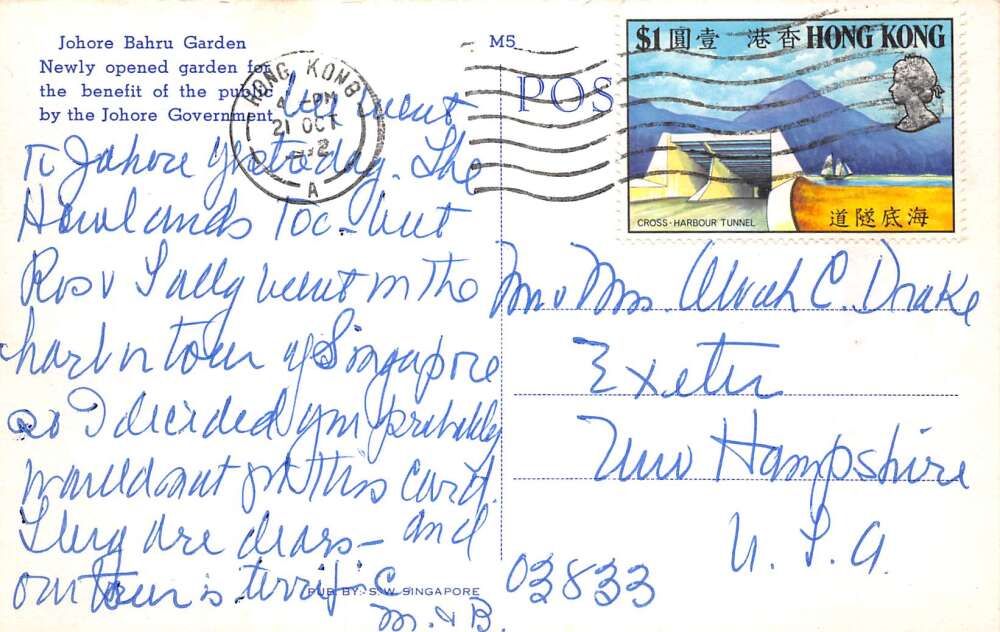 Johore Bahru Garden
Newly opened garden for
the benefit of the public
by the Johore Government
M5
POS
HONG KONG
4 PM
21 OCT
A
$1 圓壹 港香 HONG KONG
CROSS-HARBOUR TUNNEL
道隧底海
We went
to Johore yesterday. The
Howlands too - but
Ros & Sally went on the
harbor tour of Singapore
so I decided you probably
would not get this card.
They are dears - and
our tour is terrific
M. & B.
Mr & Mrs. Alvah C. Drake
Exeter
New Hampshire
U.S.A
03833
PUB BY: S.W. SINGAPORE